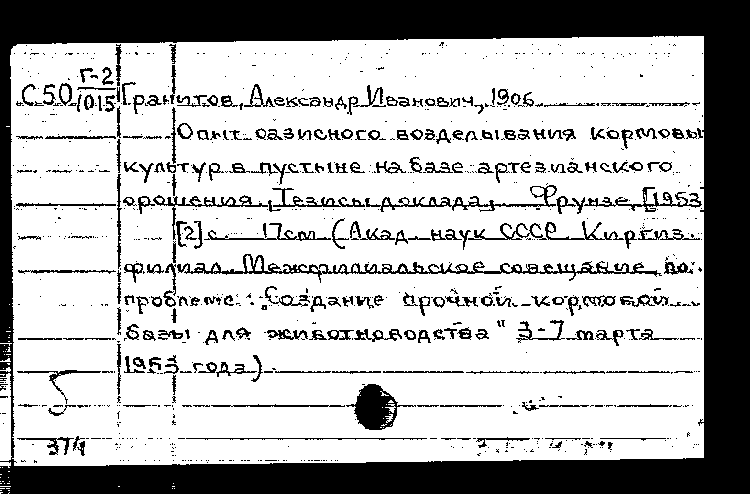 Г-2
С50 1015 Гранитов, Александр Иванович, 1906
Опыт оазисного возделывания кормовы
культур в пустыне на базе артезианского
орошения. [Тезисы доклада]. Фрунзе, [1953]
[2] с. 17см (Акад. наук СССР. Киргиз.
филиал. Межфилиальское совещание по
проблеме: "Создание прочной кормовой
базы для животноводства" 3-7 марта
1953 года).
374